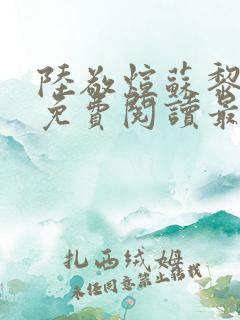 陸敬煊蘇黎
免費閱讀最
扎西绒姆
未经同意禁止转载